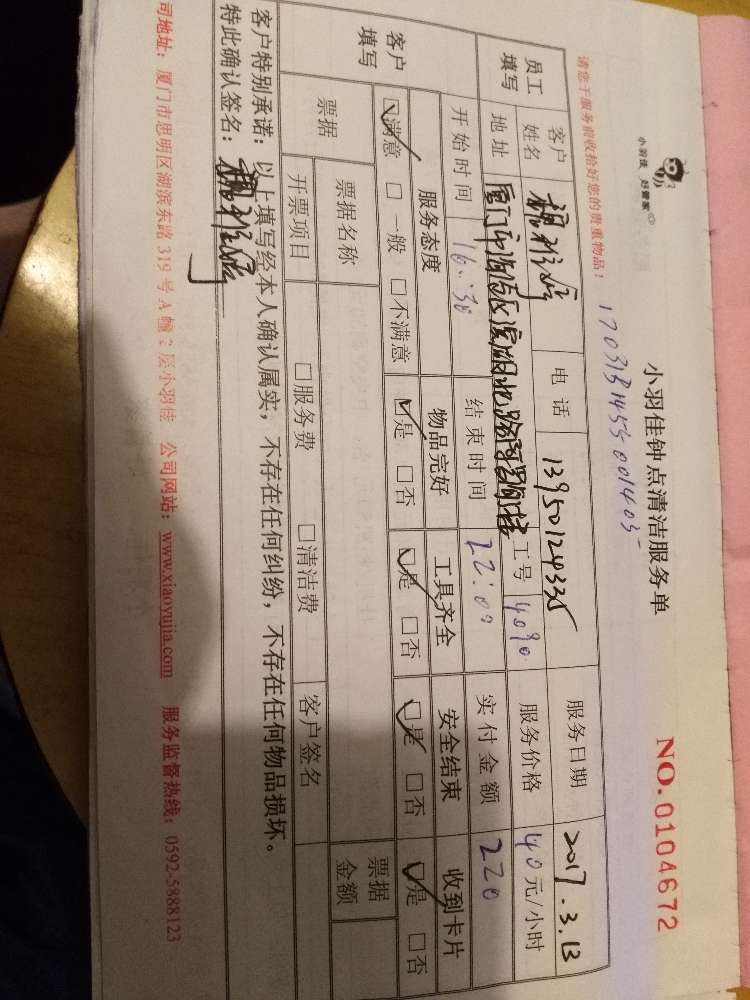 小羽佳 好管家
小羽佳钟点清洁服务单
NO.0104672
请您于服务前收拾好您的贵重物品！
员工填写
客户姓名
电话 13950124335
服务日期 2017.3.13
地址 厦门市
工号
服务价格 40元/小时
开始时间 16:30
结束时间 22:00
实付金额 220
客户填写
服务态度 物品完好 工具齐全 安全结束 收到卡片
☑满意 □一般 □不满意 ☑是 □否 ☑是 □否 ☑是 □否 ☑是 □否
票据
票据名称
票据金额
开票项目 □服务费 □清洁费 客户签名
客户特别承诺：以上填写经本人确认属实，不存在任何纠纷，不存在任何物品损坏。
特此确认签名：
司地址：厦门市思明区湖滨东路319号A幢2层小羽佳 公司网站：www.xiaoyujia.com 服务监督热线：0592-5888123